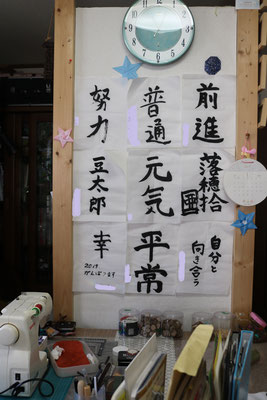 前進
落穂拾
国
自分と
向き合う
普通
元気
平常
努力
豆太郎
幸
2019
がんばります